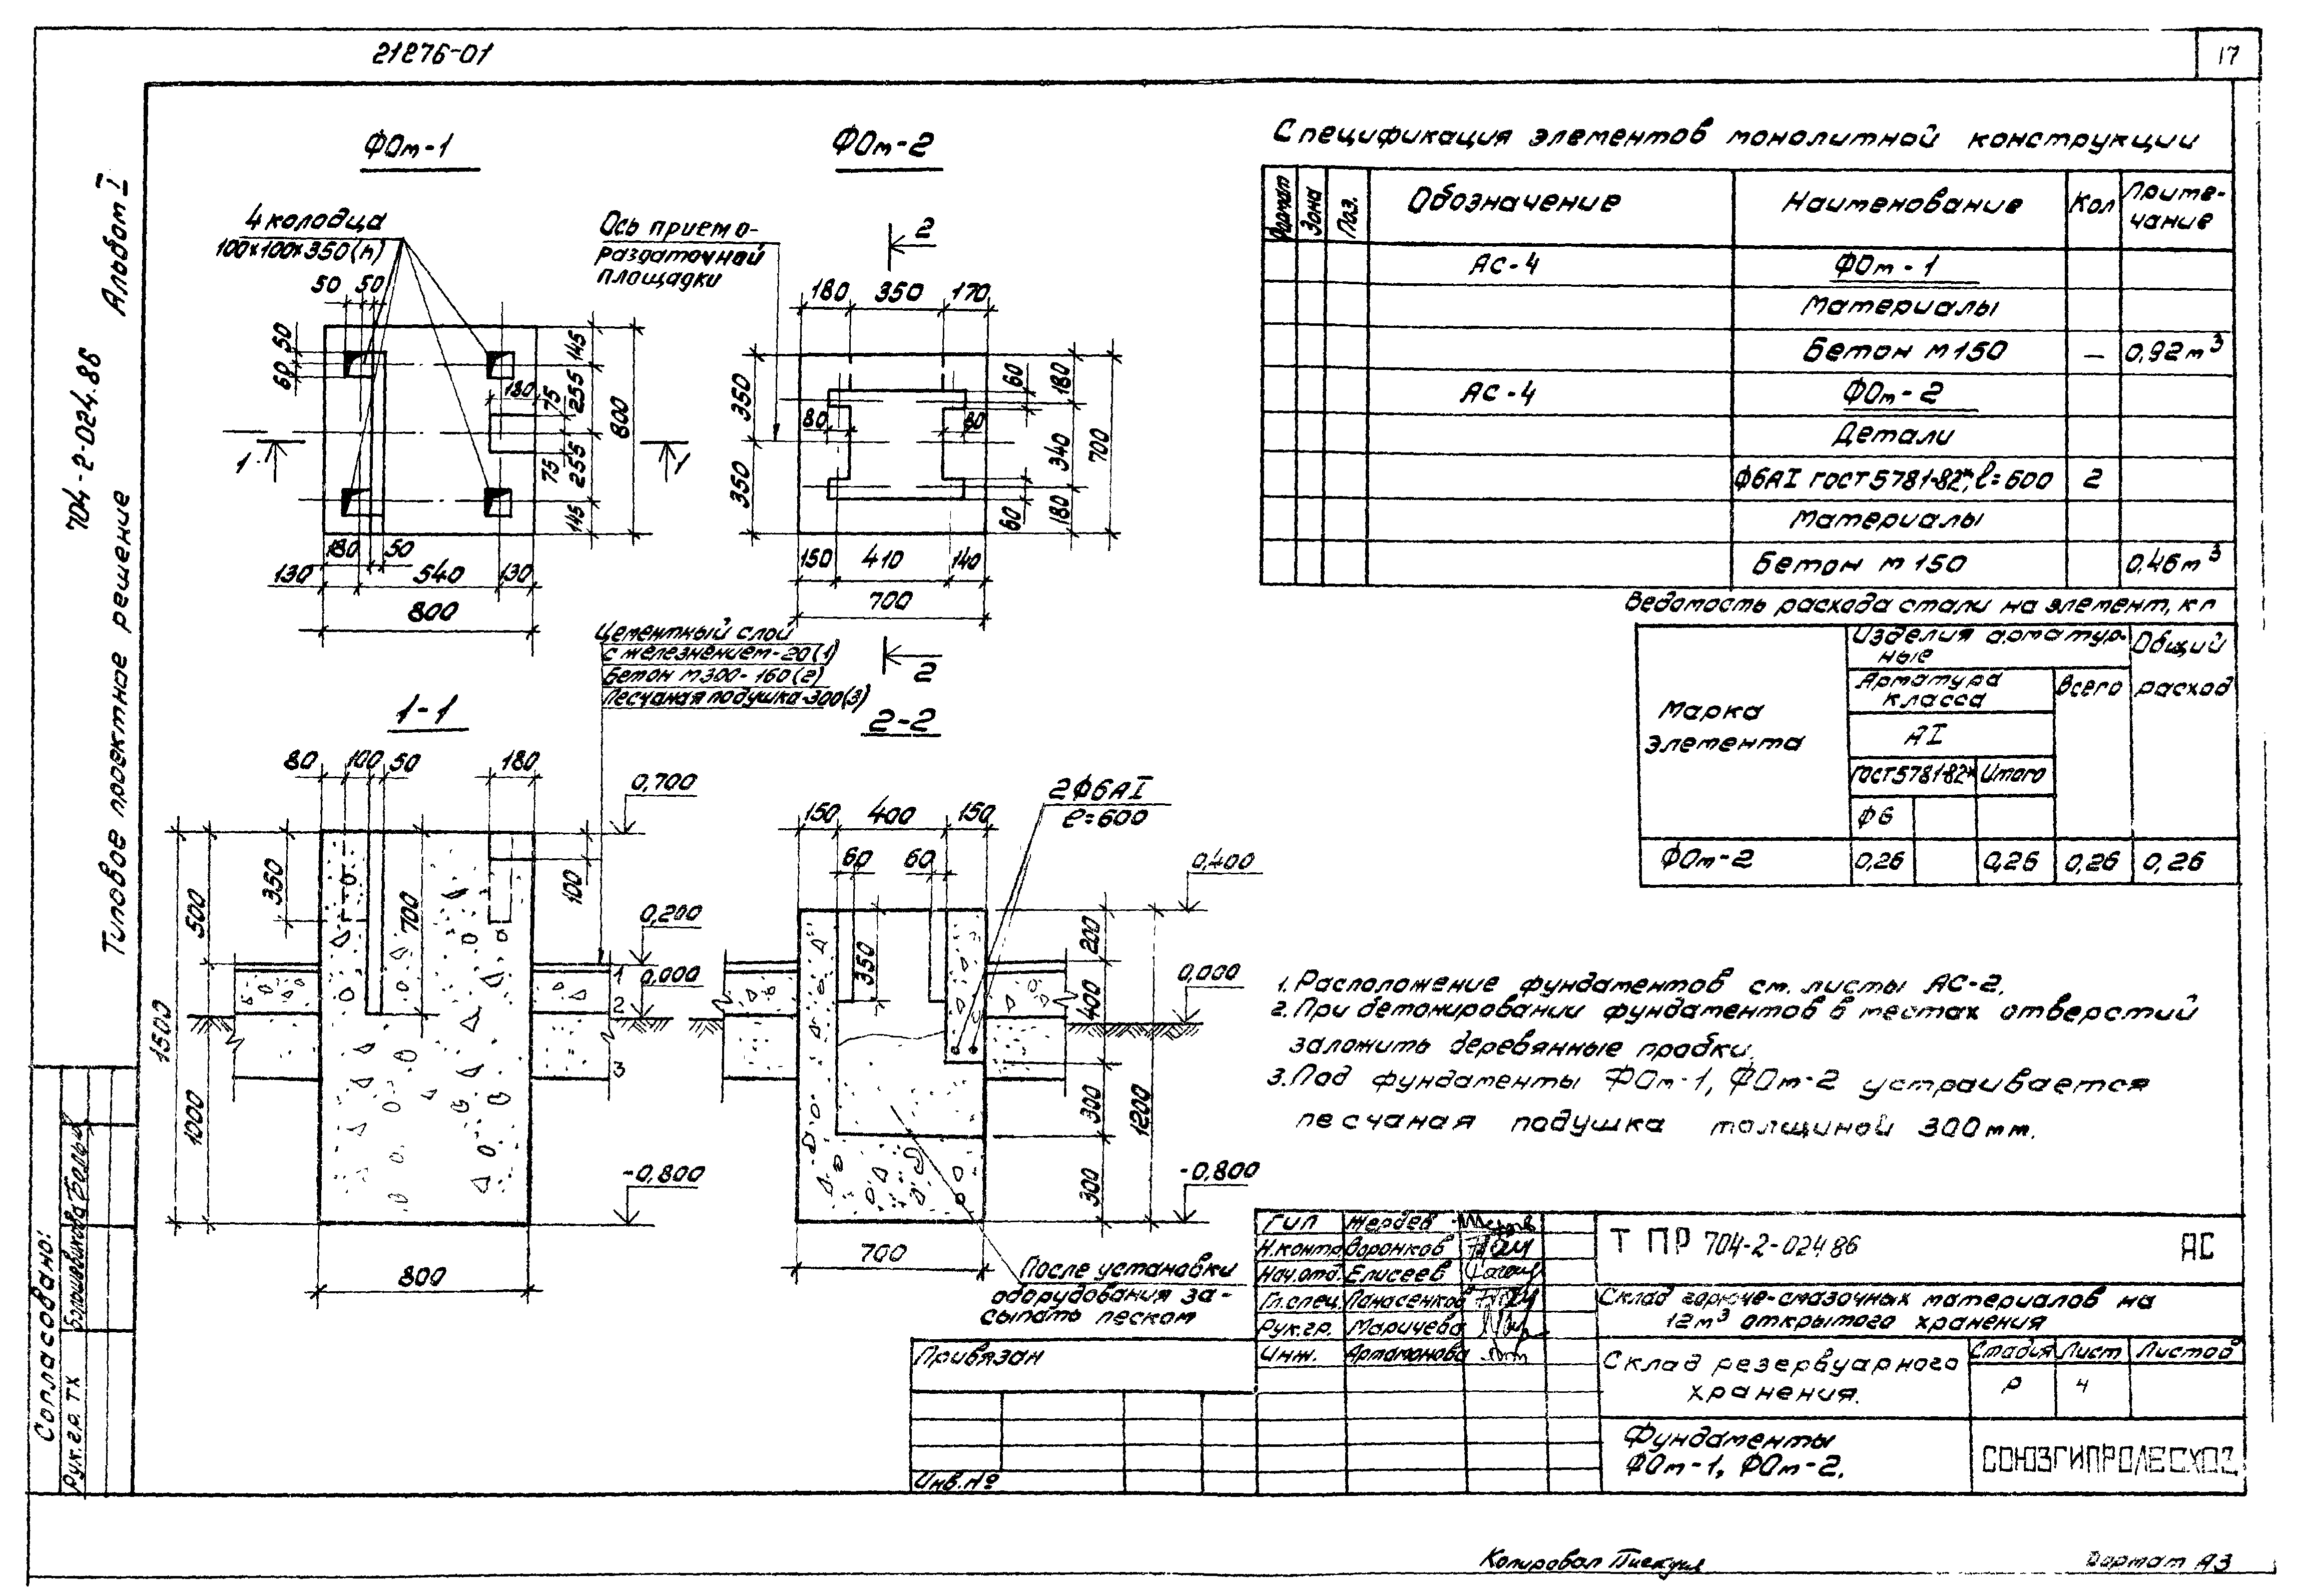 21876-01
17
Типовое проектное решение 704-2-024.86 Альбом I
ФОм-1
4 колодца
100х100х350(h)
50 50
50
60
180
75
75
145
255
255
145
800
1
1
180 50
130 540 130
800
ФОм-2
Ось приемо-
раздаточной
площадки
2
180 350 170
350
350
80
80
60
60
180
340
180
700
150 410 140
700
2
Цементный слой
с железнением-20(1)
Бетон м300-160(2)
Песчаная подушка-300(3)
1-1
80 100 50 180
0,700
1500
500
1000
350
700
100
0,200
0,000
1
2
3
-0,800
800
2-2
2ф6АI
ℓ=600
150 400 150
60 60
350
0,400
0,000
200
400
300
300
1200
-0,800
700
После установки
оборудования за-
сыпать песком
Спецификация элементов монолитной конструкции
Формат Зона Поз. Обозначение Наименование Кол Приме-
чание
АС-4 ФОм-1
Материалы
Бетон м150 — 0,92м³
АС-4 ФОм-2
Детали
ф6АI ГОСТ5781-82*, ℓ=600 2
Материалы
Бетон м150 0,46м³
Ведомость расхода стали на элемент, кг
Марка
элемента
Изделия арматур-
ные
Общий
расход
Арматура
класса
Всего
АI
ГОСТ5781-82* Итого
ф6
ФОм-2 0,26 0,26 0,26 0,26
1. Расположение фундаментов см. листы АС-2.
2. При бетонировании фундаментов в местах отверстий
заложить деревянные пробки.
3. Под фундаменты ФОм-1, ФОм-2 устраивается
песчаная подушка толщиной 300мм.
Согласовано:
Рук.гр. ТХ Большевикова
Привязан
Инв.№
ГИП Жердев
Н.контр Воронков
Нач.отд. Елисеев
Гл.спец. Панасенков
Рук.гр. Маричева
Инж. Артамонова
ТПР 704-2-024 86 АС
Склад горюче-смазочных материалов на
12м³ открытого хранения
Склад резервуарного
хранения.
Стадия Лист Листов
Р 4
Фундаменты
ФОм-1, ФОм-2.
СОЮЗГИПРОЛЕСХОЗ
Копировал
Формат А3